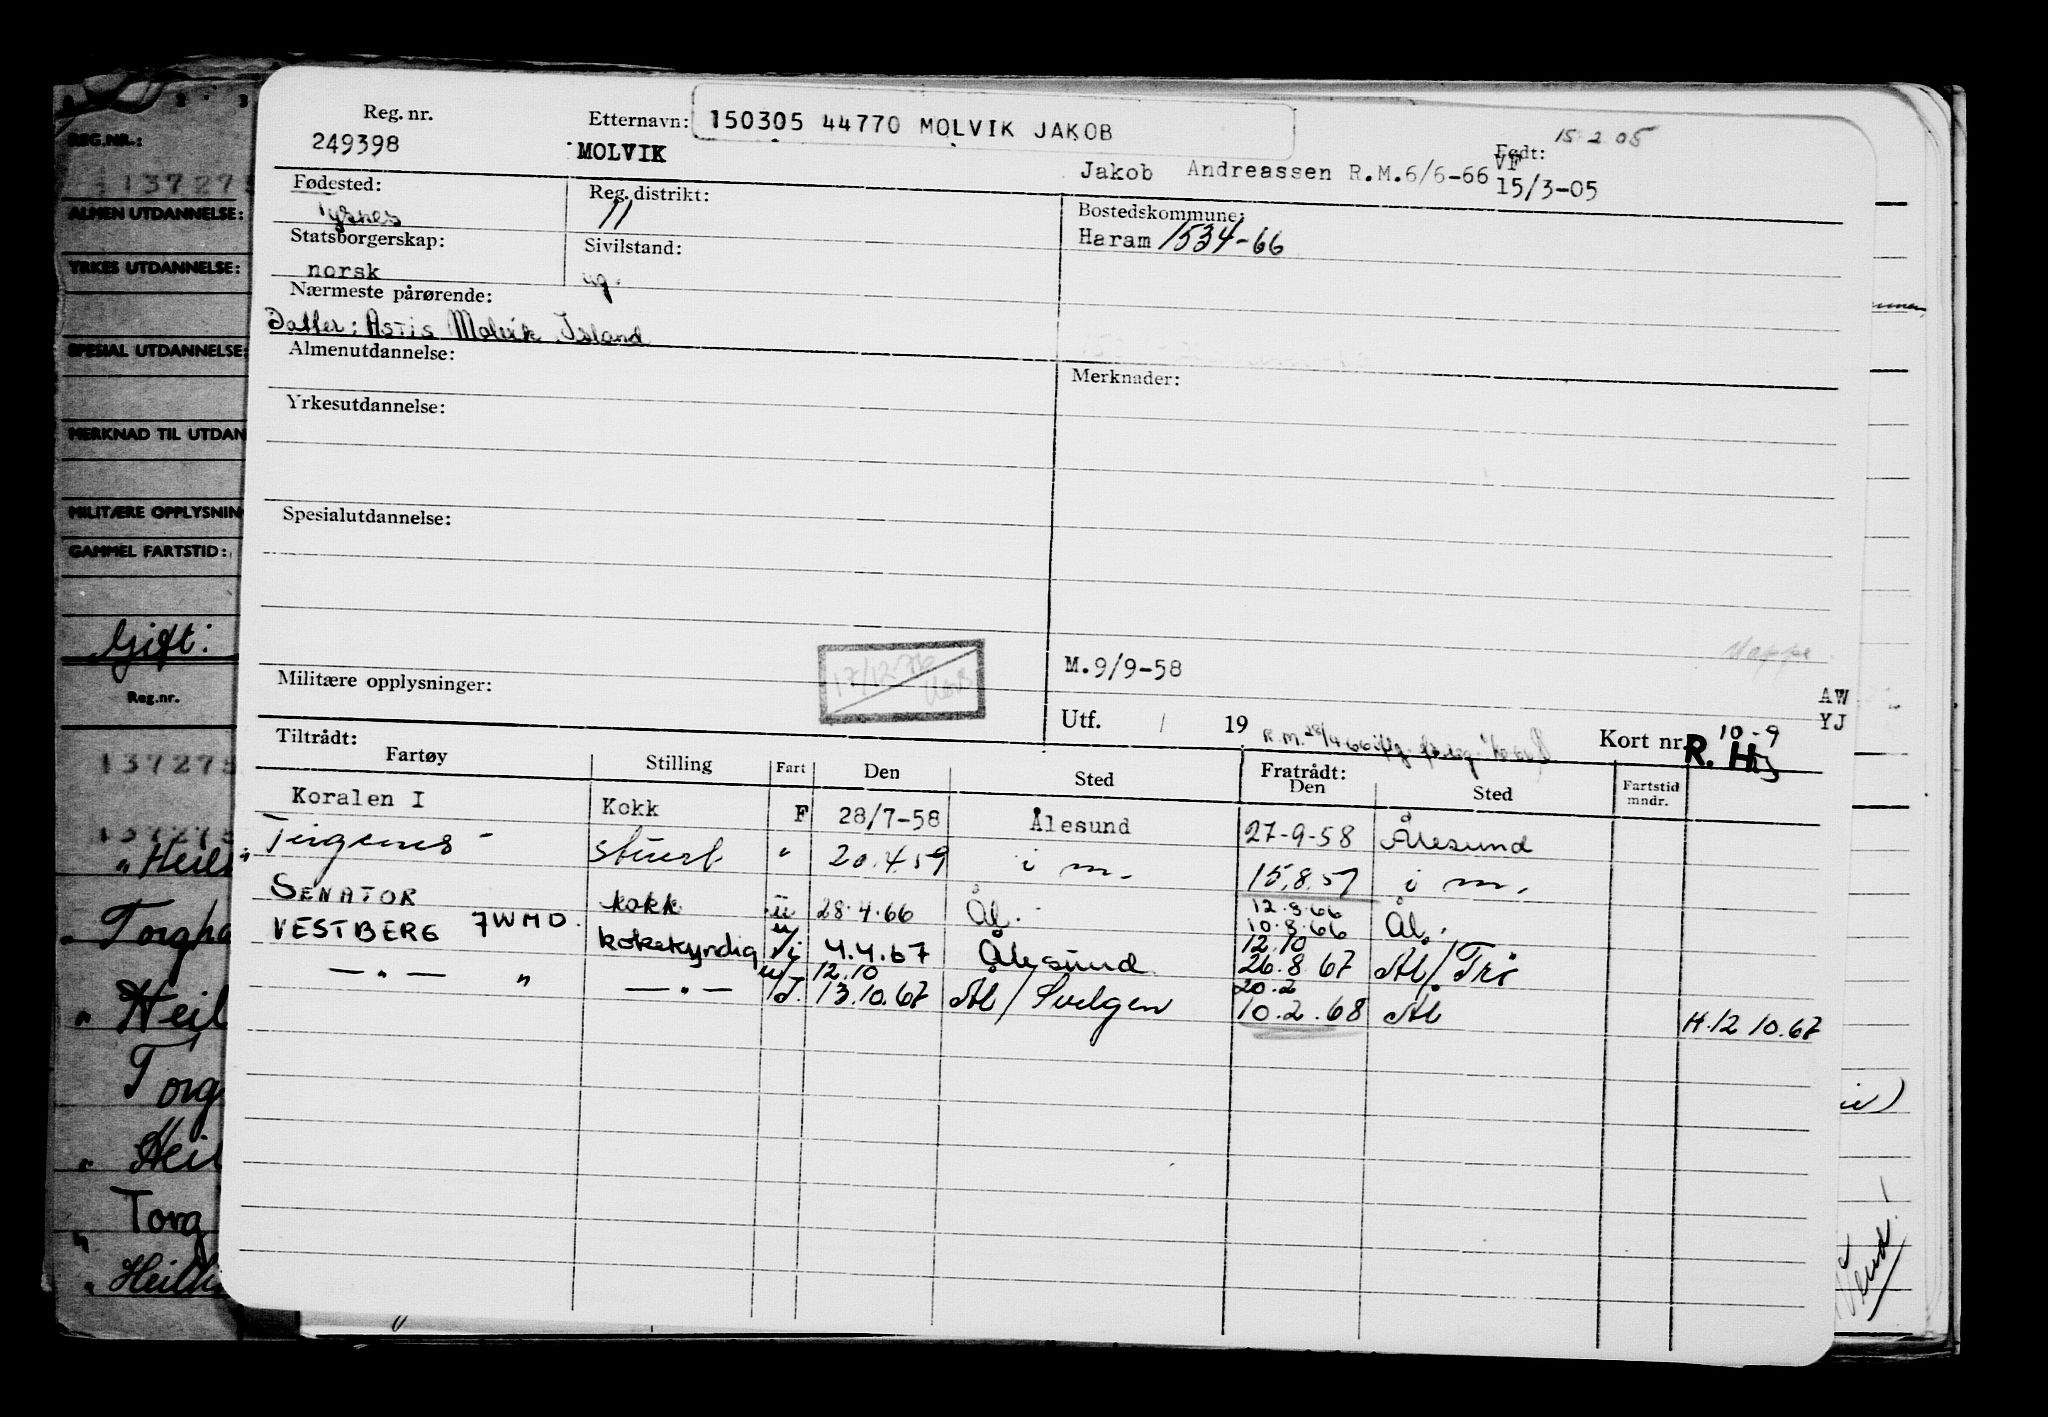 Reg. nr. Etternavn: 150305 44770 MOLVIK JAKOB Født: 15 2 05
249398 MOLVIK Jakob Andreassen R.M.6/6-66 VF 15/3-05
Fødested: Reg. distrikt: Bostedskommune:
Tysnes 11 Haram 1534-66
Statsborgerskap: Sivilstand:
norsk ug.
Nærmeste pårørende:
Datter: Astis Molvik Island
Almenutdannelse: Merknader:
Yrkesutdannelse:
Spesialutdannelse:
Mappe
17/12
M.9/9-58
Militære opplysninger: AW
Utf. / 19 R.M. 28/4 66 Kort nr. 10-9 YJ
R. H
Tiltrådt: Fratrådt:
Fartøy Stilling Fart Den Sted Den Sted Fartstid mndr.
Koralen I Kokk F 28/7-58 Ålesund 27-9-58 Ålesund
stuert " 20.4.59 i m. 15.8.59 i m.
12.8.66
SENATOR kokk u 28.4.66 Ål. 10.8.66 Ål.
12.10
VESTBERG JWMD. kokekyndig u/i 4.4.67 Ålesund 26.8.67 Ål/Tri
12.10 20.2
— " — " — " — u/I. 13.10.67 Ål/Svelgen 10.2.68 Ål H.12 10.67
REG.NR.:
137275
ALMEN UTDANNELSE:
YRKES UTDANNELSE:
SPESIAL UTDANNELSE:
MERKNAD TIL UTDAN
MILITÆRE OPPLYSNIN
GAMMEL FARTSTID:
Gift:
Reg.nr.
137275
137275
" Heil
" Torgha
" Heil
Torg
" Heil
Torg
" Heilh